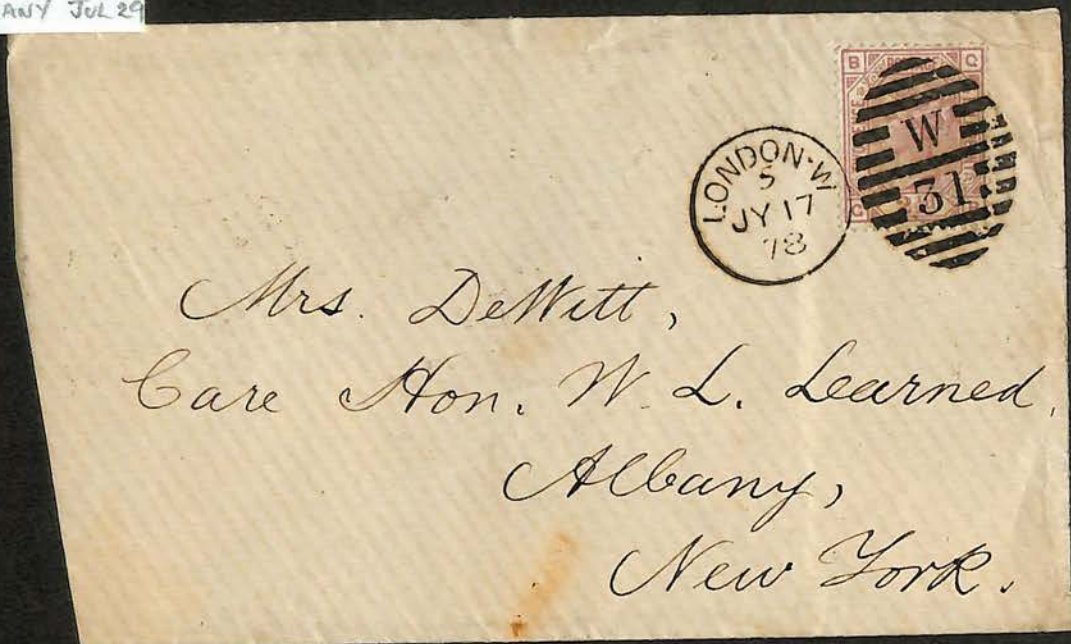 ANY JUL 29
B Q
LONDON·W
5
JY 17
78
W
31
Mrs. DeWitt,
Care Hon. W. L. Learned,
Albany,
New York.